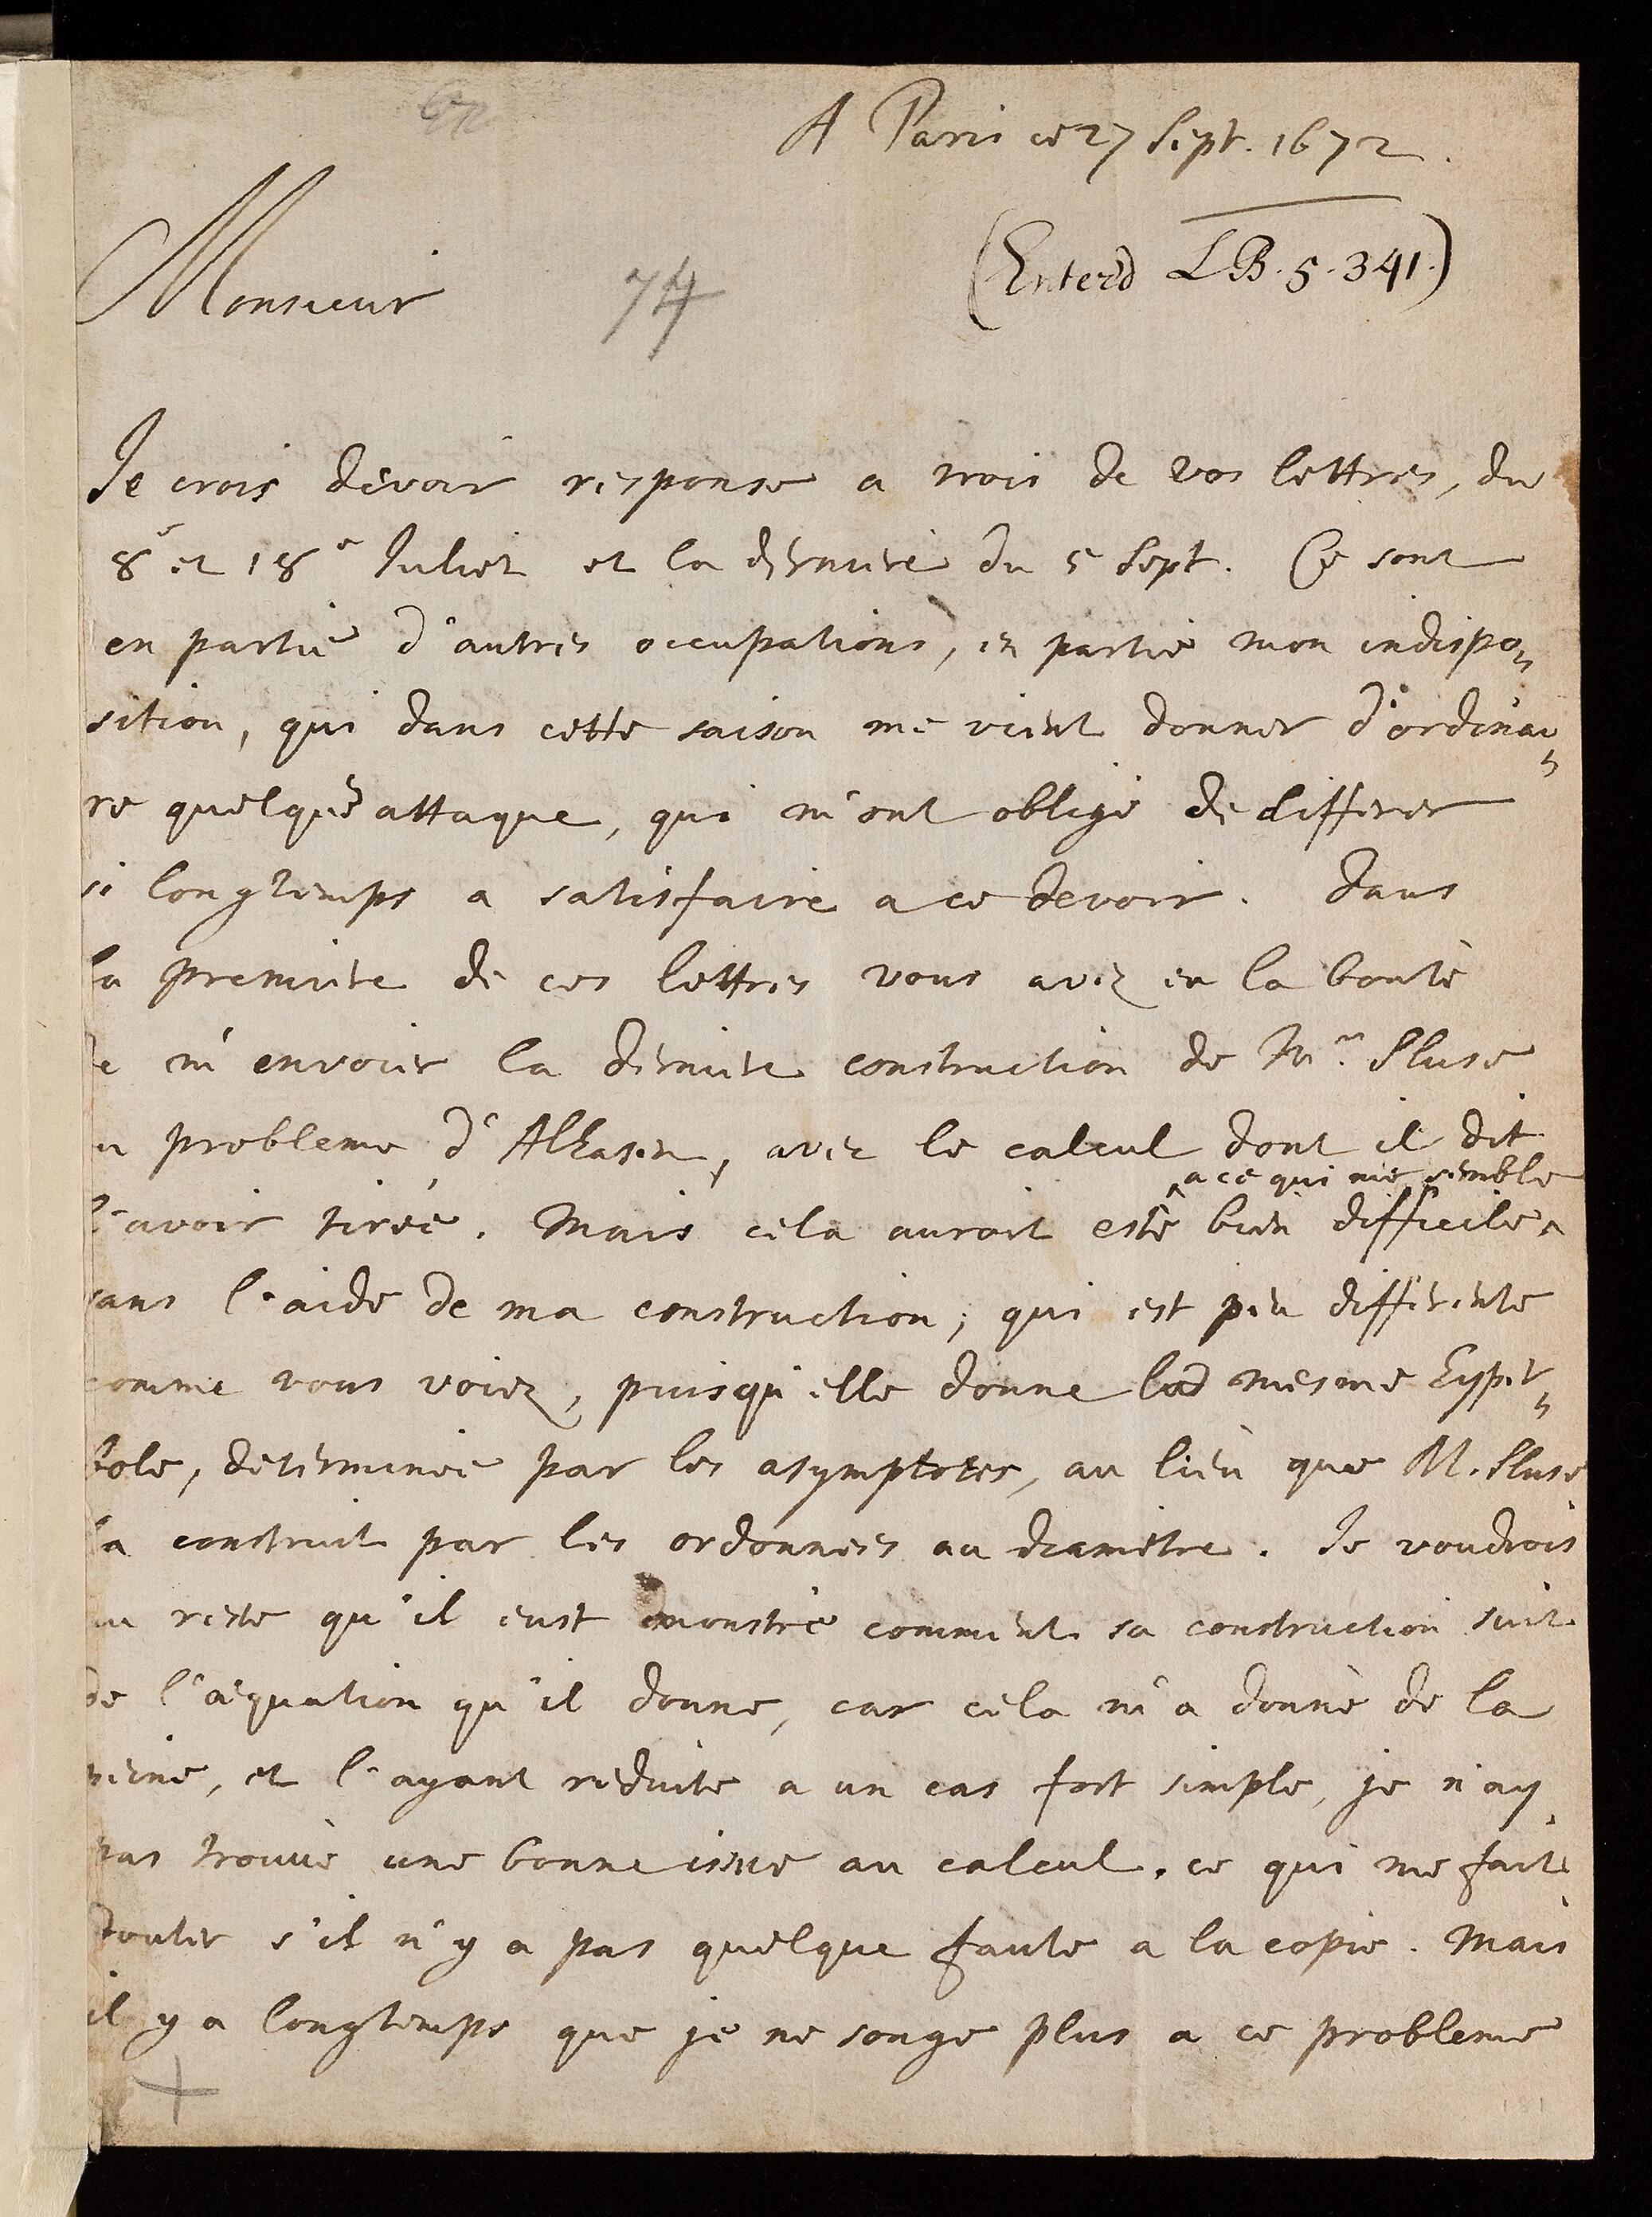 A Paris ce 27 Sept. 1672.
(Enterd LB. 5. 341.)
Monsieur
74
Je crois devoir response a trois de vos lettres, du
8e et 18e Juliet et la derniere du 5 Sept. Ce sont
en partie d'autres occupations, en partie mon indispo„
sition, qui dans cette saison me vient donner d'ordinai„
re quelque attaque, qui m'ont obligé de differer
si longtemps a satisfaire a ce devoir. Dans
la premiere de ces lettres vous avez eu la bontè
de m'envoier la derniere construction de Mr. Sluse
du probleme d'Alhasen, avec le calcul dont il dit
a ce qui me semble
l'avoir tirée. Mais cela auroit estè bien difficile
sans l'aide de ma construction; qui est peu differente
comme vous voiez, puisqu'elle donne la mesme hyper„
bole, determinée par les asymptotes, au lieu que M. Sluse
la construit par les ordonnees au diametre. Je voudrois
au reste qu'il eust monstrè comment sa construction suit
de l'aequation qu'il donne, car cela m'a donnè de la
peine, et l'ayant reduite a un cas fort simple, je n'ay
pas trouvè une bonne issue au calcul. ce qui me fait
douter s'il n'y a pas quelque faute a la copie. Mais
il y a longtemps que je ne songe plus a ce probleme
181